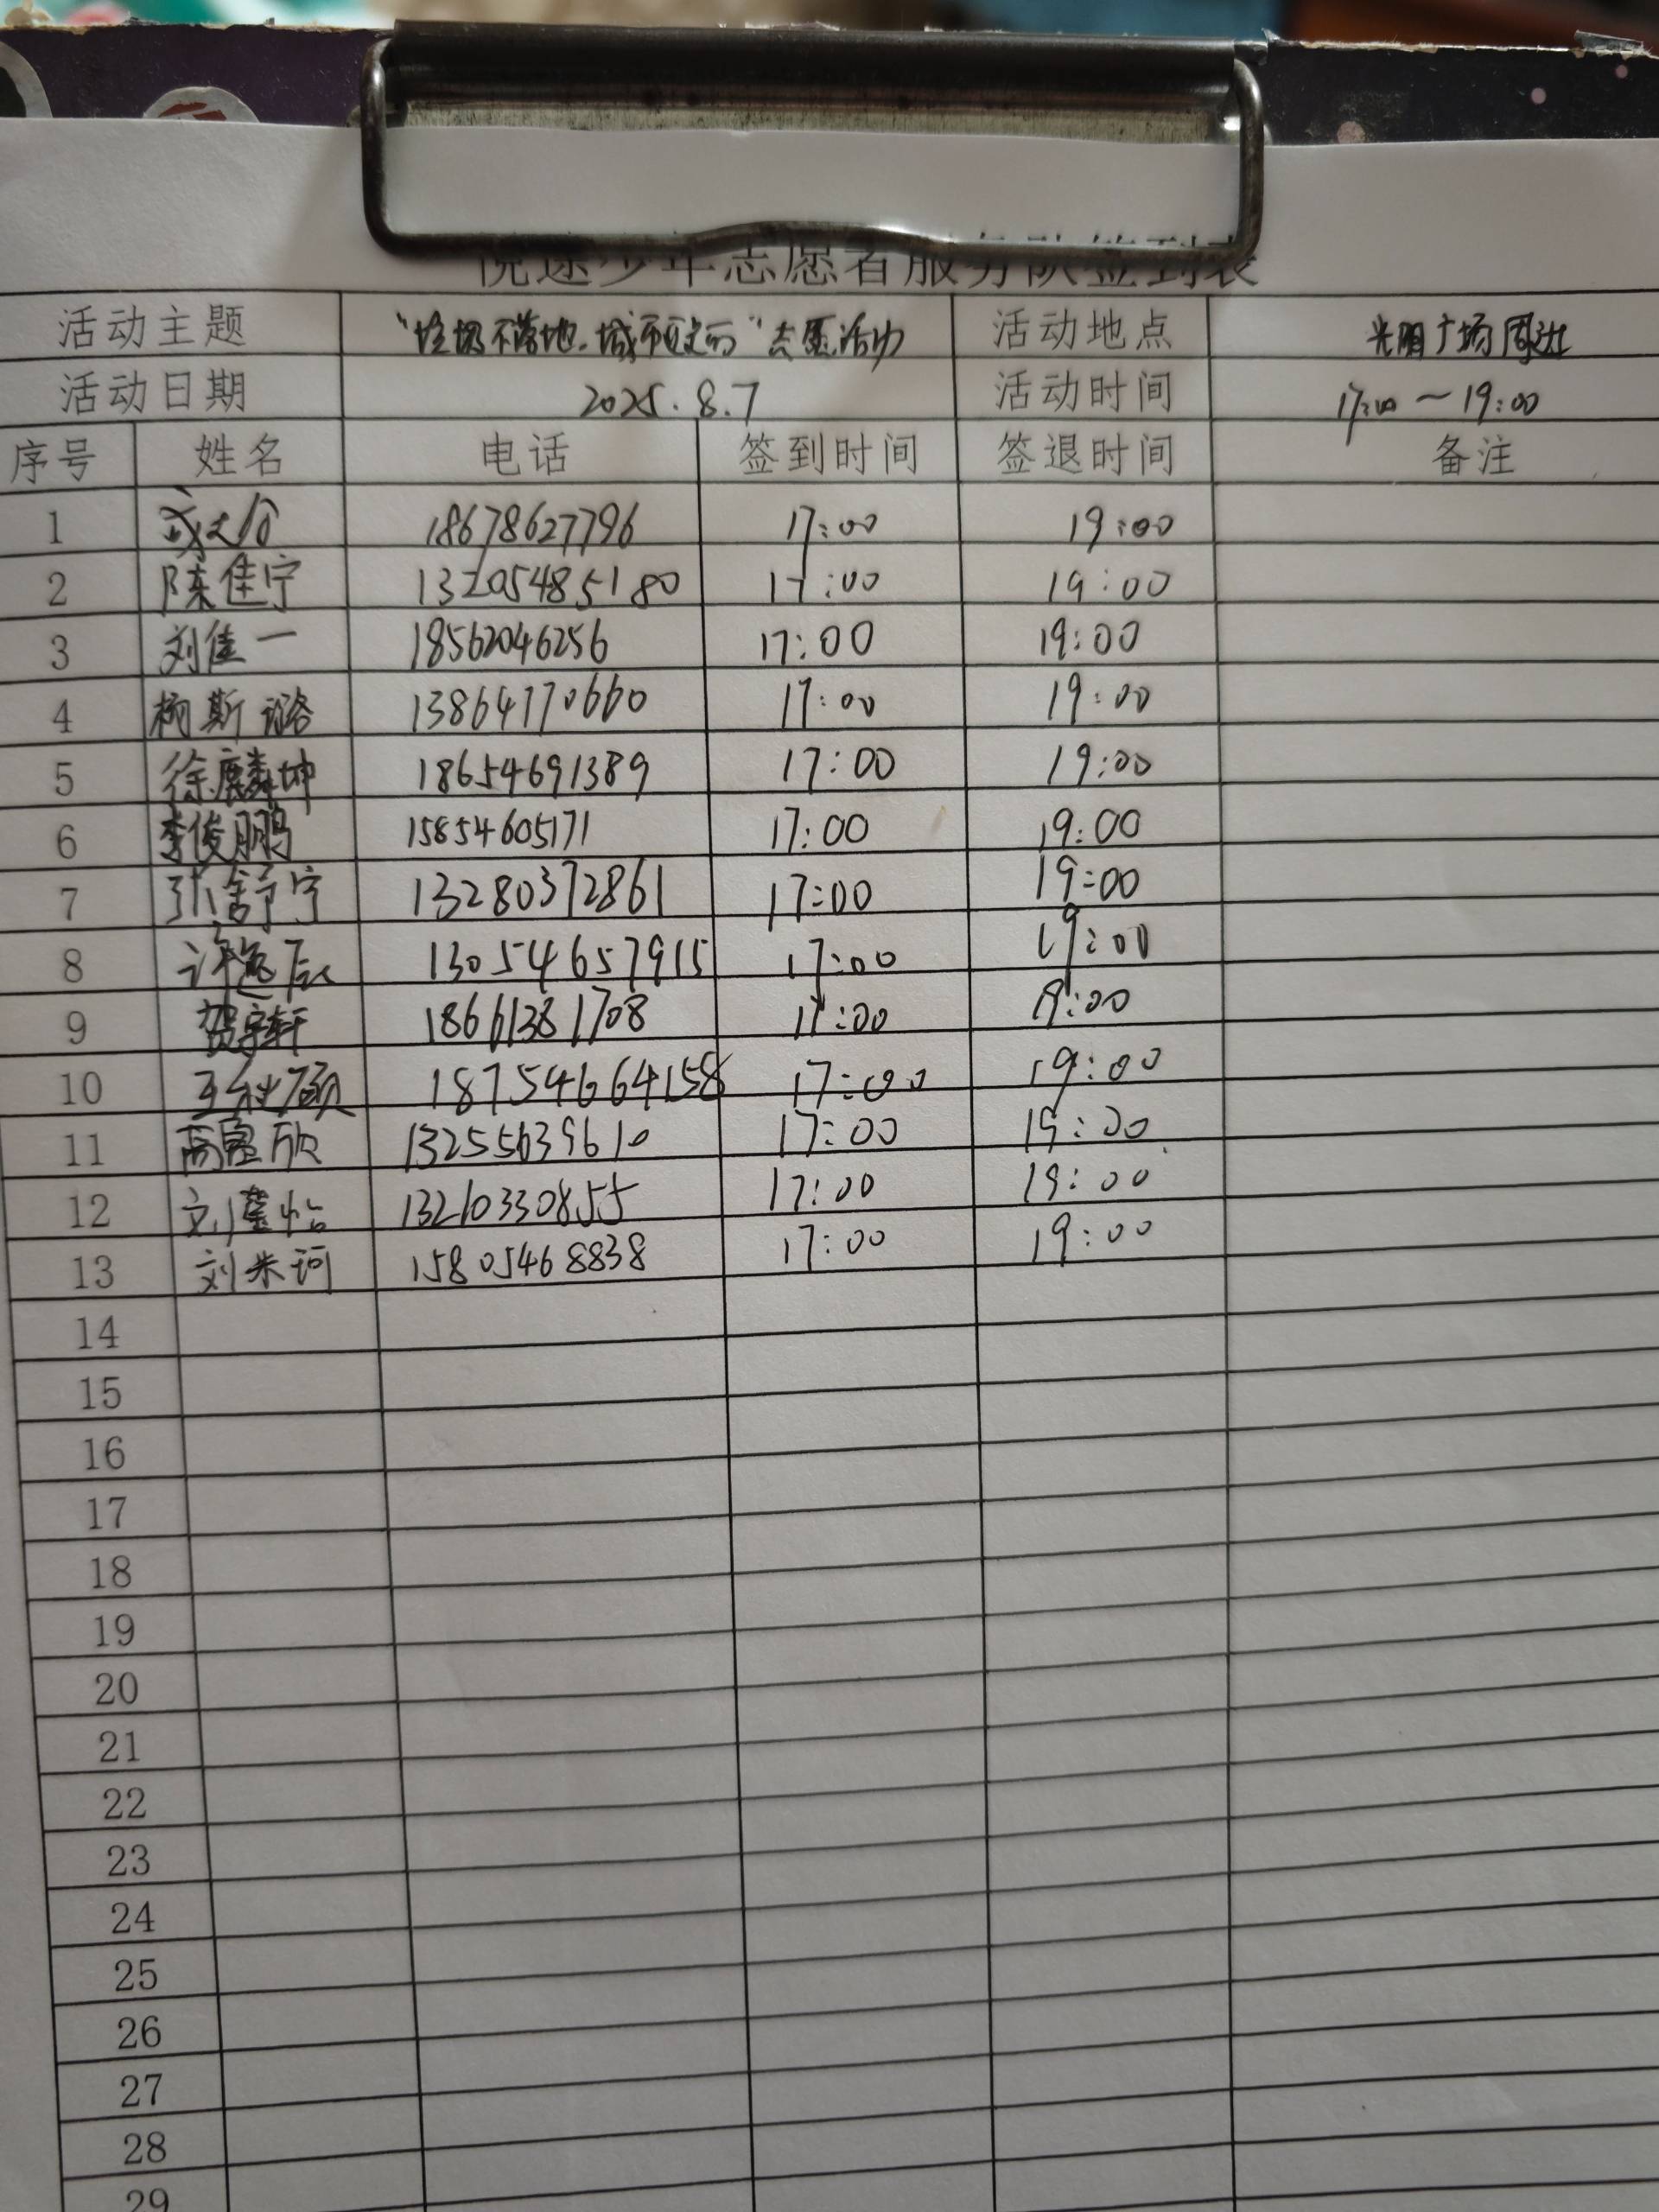 悦途少年志愿者服务队签到表
活动主题 "垃圾不落地.城市更文明"志愿活动 活动地点 光明广场周边
活动日期 2025.8.7 活动时间 17:00~19:00
序号 姓名 电话 签到时间 签退时间 备注
1 18678627796 17:00 19:00
2 陈佳宁 13205485180 17:00 19:00
3 刘佳一 18562046256 17:00 19:00
4 柳斯璐 13864770660 17:00 19:00
5 徐麟坤 18654691389 17:00 19:00
6 李俊鹏 15854605171 17:00 19:00
7 张舒宁 13280372861 17:00 19:00
8 许逸辰 13054657915 17:00 19:00
9 贺宇轩 18661381708 17:00 19:00
10 18754664158 17:00 19:00
11 13255639610 17:00 19:00
12 13210330855 17:00 19:00
13 刘米诃 15805468838 17:00 19:00
14
15
16
17
18
19
20
21
22
23
24
25
26
27
28
29